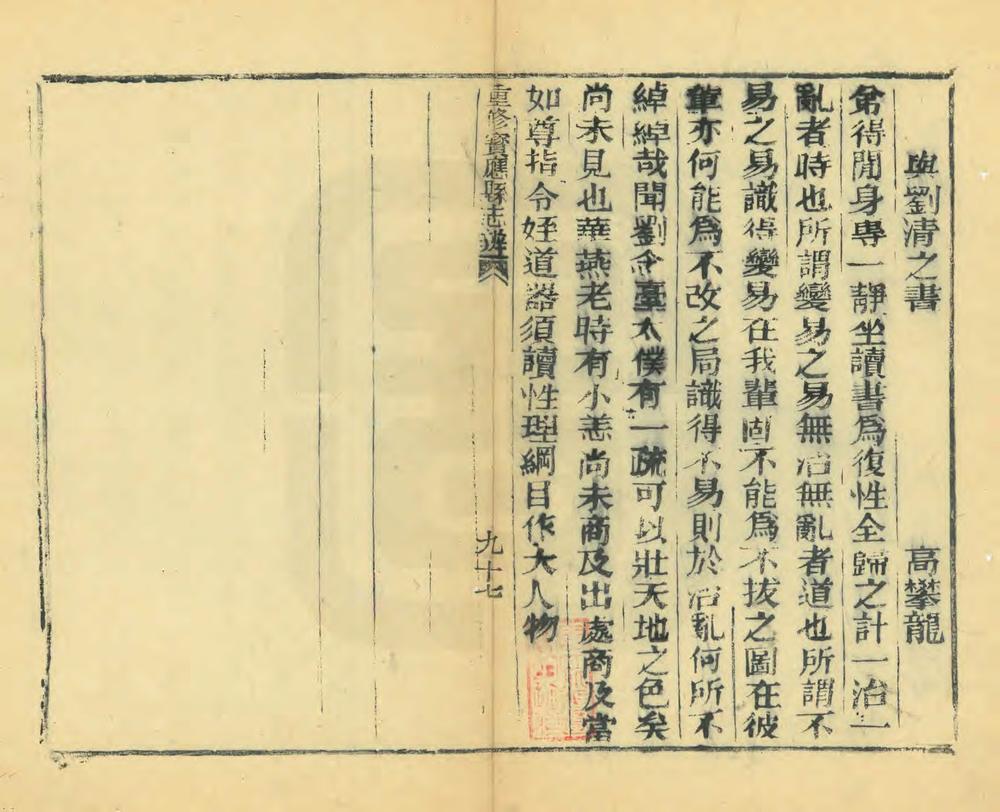 與劉清之書 高攀龍
弟得閒身專一靜坐讀書爲復性全歸之計一治一
亂者時也所謂變易之易無治無亂者道也所謂不
易之易識得變易在我輩固不能爲不拔之圖在彼
輩亦何能爲不改之局識得不易則於治亂何所不
綽綽哉聞劉念臺太僕有一疏可以壯天地之色矣
尚未見也華燕老時有小恙尚未商及出處商及當
如尊指令姪道器須讀性理綱目作大人物
重修寶應縣志辨 九十七